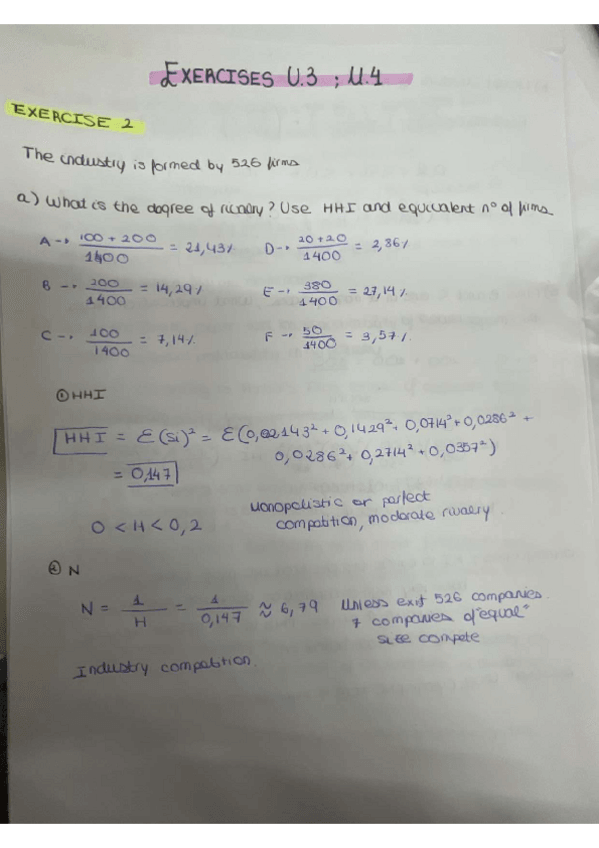 EXERCISES U.3 ; U.4
EXERCISE 2
The industry is formed by 526 firms
a) What is the degree of rivalry? Use HHI and equivalent nº of firms.
A -> (100 + 200)/1400 = 21,43% D -> (20+20)/1400 = 2,86%
B -> 200/1400 = 14,29% E -> 380/1400 = 27,14%
C -> 100/1400 = 7,14% F -> 50/1400 = 3,57%
① HHI
HHI = Σ(Si)² = Σ(0,02143² + 0,1429² + 0,0714² + 0,0286² +
0,0286² + 0,2714² + 0,0357²)
= 0,147
Monopolistic or perfect
0 < H < 0,2 competition, moderate rivalry.
② N
N = 1/H = 1/0,147 ≈ 6,79 Unless exit 526 companies.
7 companies of "equal"
size compete
Industry competition.